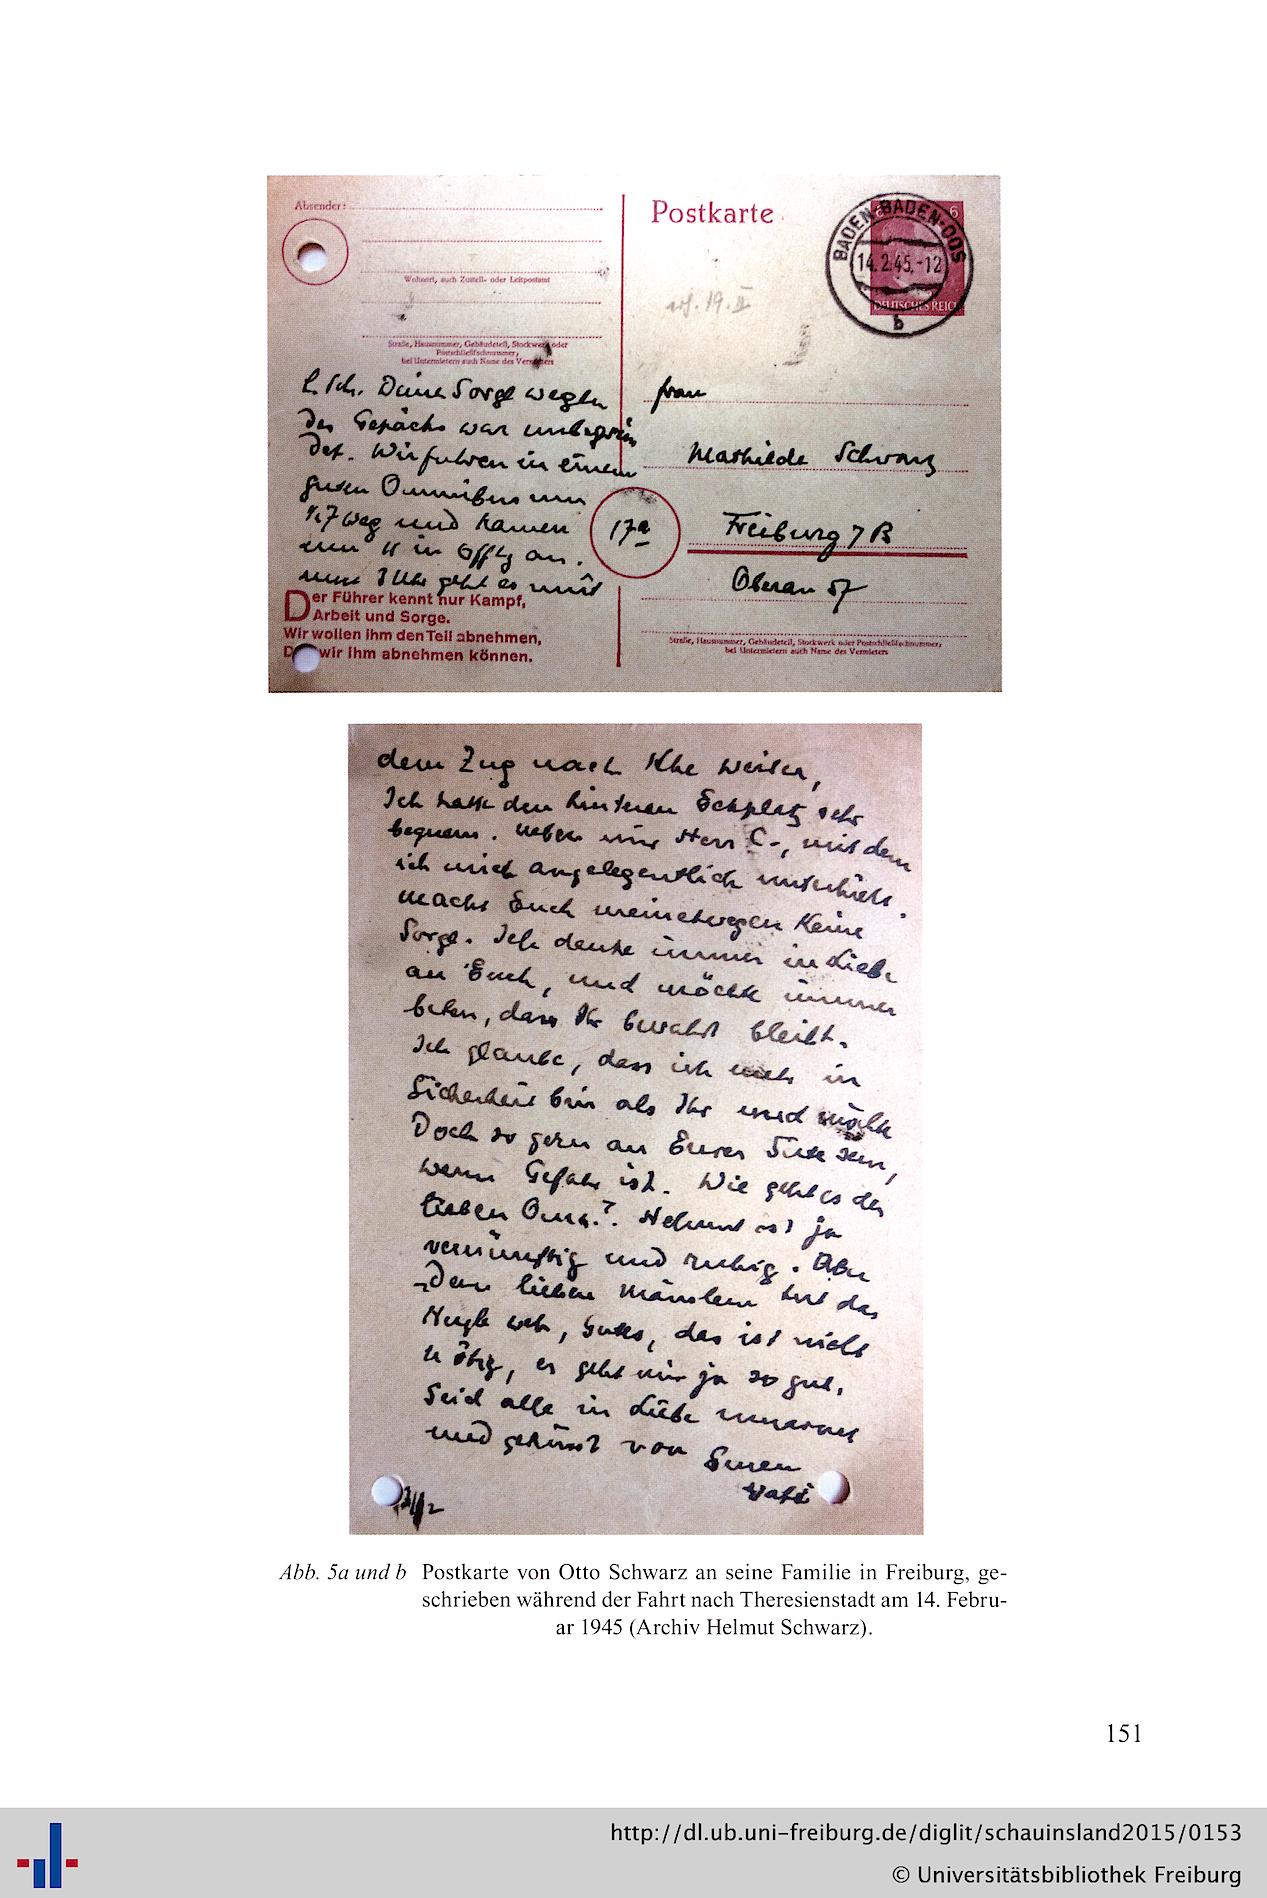 Absender:
Wohnort, auch Zustell- oder Leitpostamt
Straße, Hausnummer, Gebäudeteil, Stockwerk oder
Postschließfachnummer,
bei Untermietern auch Name des Vermieters
Postkarte
BADEN-BADEN-OOS
14.2.45.-12
b
6
DEUTSCHES REICH
19. II
L. Sch. Deine Sorge wegen
des Gepäcks war unbegrün
det. Wir fuhren in einem
guten Omnibus um
1/2 7 weg und kamen
um 11 in Offbg an.
Um 3 Uhr geht es mit
Der Führer kennt nur Kampf,
Arbeit und Sorge.
Wir wollen ihm den Teil abnehmen,
D wir ihm abnehmen können.
Frau
Mathilde Schwarz
17a
Freiburg 7 B
Oberau 57
Straße, Hausnummer, Gebäudeteil, Stockwerk oder Postschließfachnummer,
bei Untermietern auch Name des Vermieters
dem Zug nach Khe weiter,
Ich hatte den hinteren Eckplatz sehr
bequem. Neben mir Herr C., mit dem
ich mich angelegentlich unterhielt.
Macht Euch meinetwegen keine
Sorge. Ich denke immer in Liebe
an Euch, und möchte immer
beten, dass Ihr bewahrt bleibt.
Ich glaube, dass ich mehr in
Sicherheit bin als Ihr und möchte
Doch so gern an Eurer Seite sein,
wenn Gefahr ist. Wie geht es der
lieben Oma? Helmut ist ja
vernünftig und ruhig. Aber
Dem lieben Mäuslein tut das
weh, Gutes, das ist nicht
nötig, es geht mir ja so gut.
Seid alle in Liebe umarmt
und geküsst von Eurem
Vati
Abb. 5a und b Postkarte von Otto Schwarz an seine Familie in Freiburg, ge-
schrieben während der Fahrt nach Theresienstadt am 14. Febru-
ar 1945 (Archiv Helmut Schwarz).
151
http://dl.ub.uni-freiburg.de/diglit/schauinsland2015/0153
© Universitätsbibliothek Freiburg